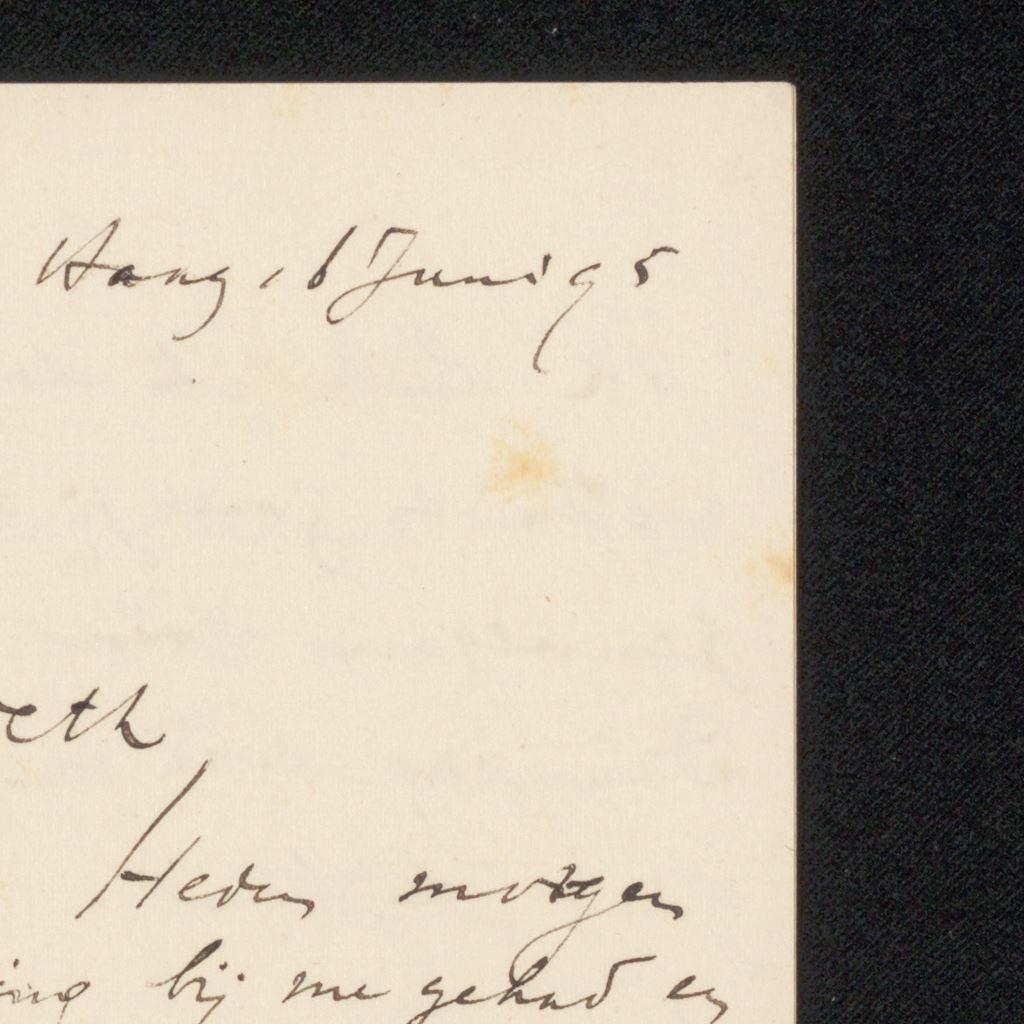 Haag 16 Juni 95
eth
Heden morgen
ing bij me gehad en